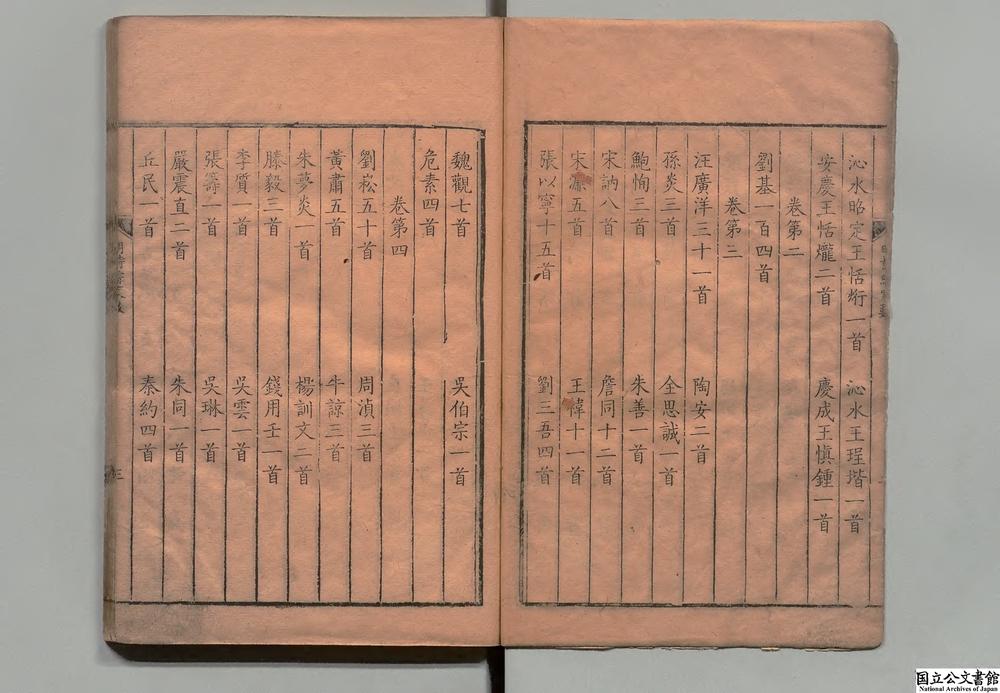 沁水昭定王恬烆一首　沁水王珵堦一首
安慶王恬爖二首　慶成王慎鍾一首
卷第二
劉基一百四首
卷第三
汪廣洋三十一首　陶安二首
孫炎三首　全思誠一首
鮑恂三首　朱善一首
宋訥八首　詹同十二首
宋濂五首　王禕十一首
張以寧十五首　劉三吾四首
魏觀七首　吳伯宗一首
危素四首
卷第四
劉崧五十首　周湞三首
黃肅五首　牛諒三首
朱夢炎一首　楊訓文二首
滕毅三首　錢用壬一首
李質一首　吳雲一首
張籌一首　吳琳一首
嚴震直二首　朱同一首
丘民一首　秦約四首
国立公文書館
National Archives of Japan